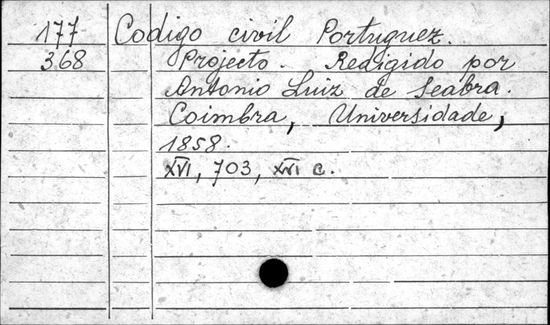 177 Codigo civil Portuguez.
368 Projecto. Redigido por
Antonio Luiz de Seabra.
Coimbra, Universidade,
1858.
XVI, 703, XVI c.